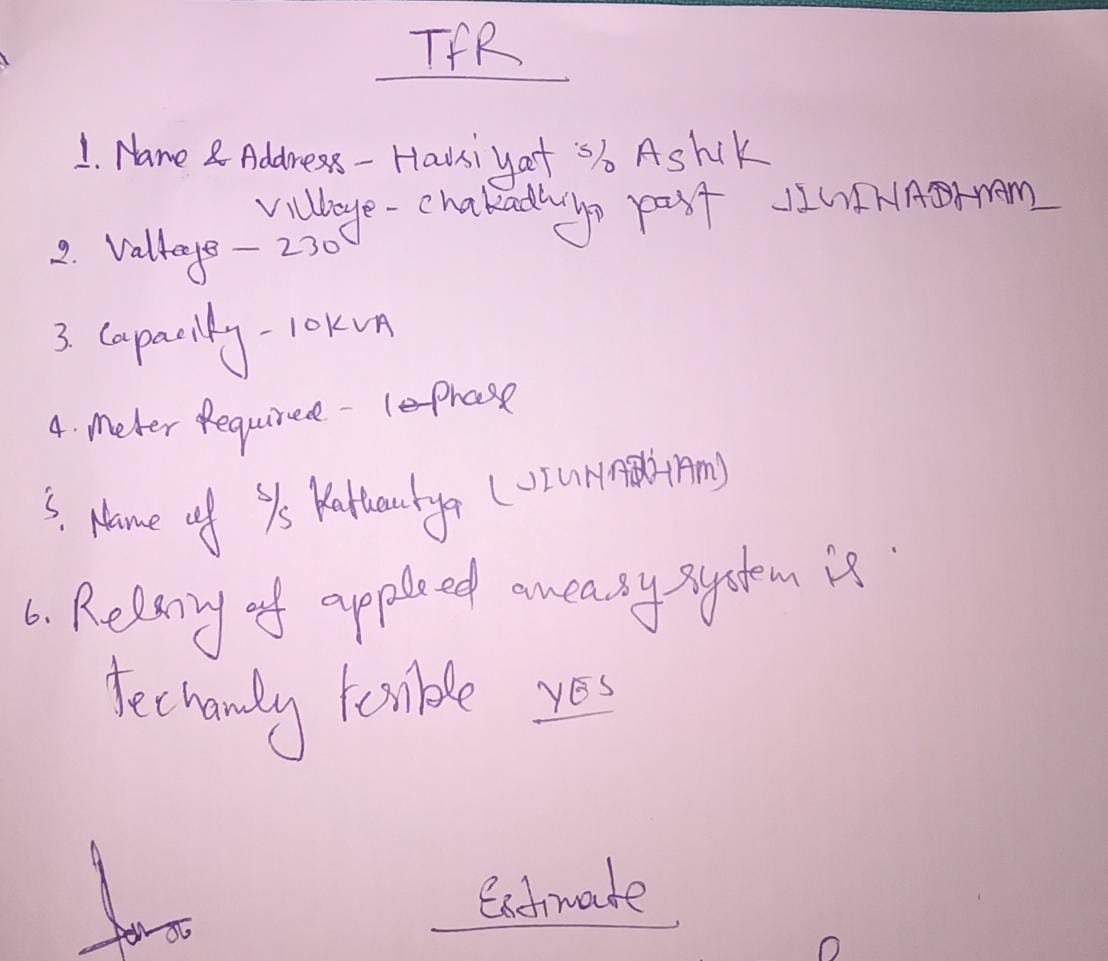 TFR
1. Name & Address - Haisiyat s/o Ashik
Village - chakadhiya post JIGINADHAM
2. Valtage - 230
3. Capacity - 10KVA
4. Meter Required - 1 Phase
5. Name of s/s Kathautya (JIGINADHAM)
6. of applied system is
fesible YES
Estimate